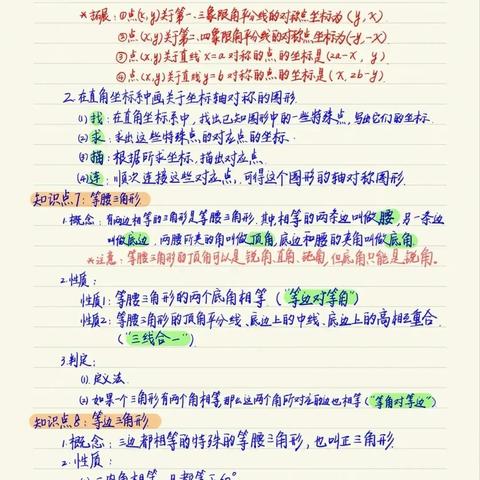 *拓展:①点(x,y)关于第一、三象限角平分线的对称点坐标为(y,x)
②点(x,y)关于第二、四象限角平分线的对称点坐标为(-y,-x)
③点(x,y)关于直线x=a对称的点的坐标是(2a-x,y)
④点(x,y)关于直线y=b对称的点的坐标是(x,2b-y)
2.在直角坐标系中画关于坐标轴对称的图形.
(1)找:在直角坐标系中,找出已知图形中的一些特殊点,写出它们的坐标.
(2)求:求出这些特殊点的对应点的坐标.
(3)描:根据所求坐标,描出对应点.
(4)连:顺次连接这些对应点,可得这个图形的轴对称图形.
知识点7:等腰三角形
1.概念:有两边相等的三角形是等腰三角形.其中,相等的两条边叫做腰,另一条边
叫做底边,两腰所夹的角叫做顶角,底边和腰的夹角叫做底角.
*注意:等腰三角形的顶角可以是锐角、直角、钝角,但底角只能是锐角。
2.性质:
性质1:等腰三角形的两个底角相等("等边对等角")
性质2:等腰三角形的顶角平分线、底边上的中线、底边上的高相互重合.
("三线合一")
3.判定:
(1).定义法.
(2)如果一个三角形有两个角相等,那么这两个角所对应的边也相等("等角对等边")
知识点8:等边三角形
1.概念:三边都相等的特殊的等腰三角形,也叫正三角形
2.性质: